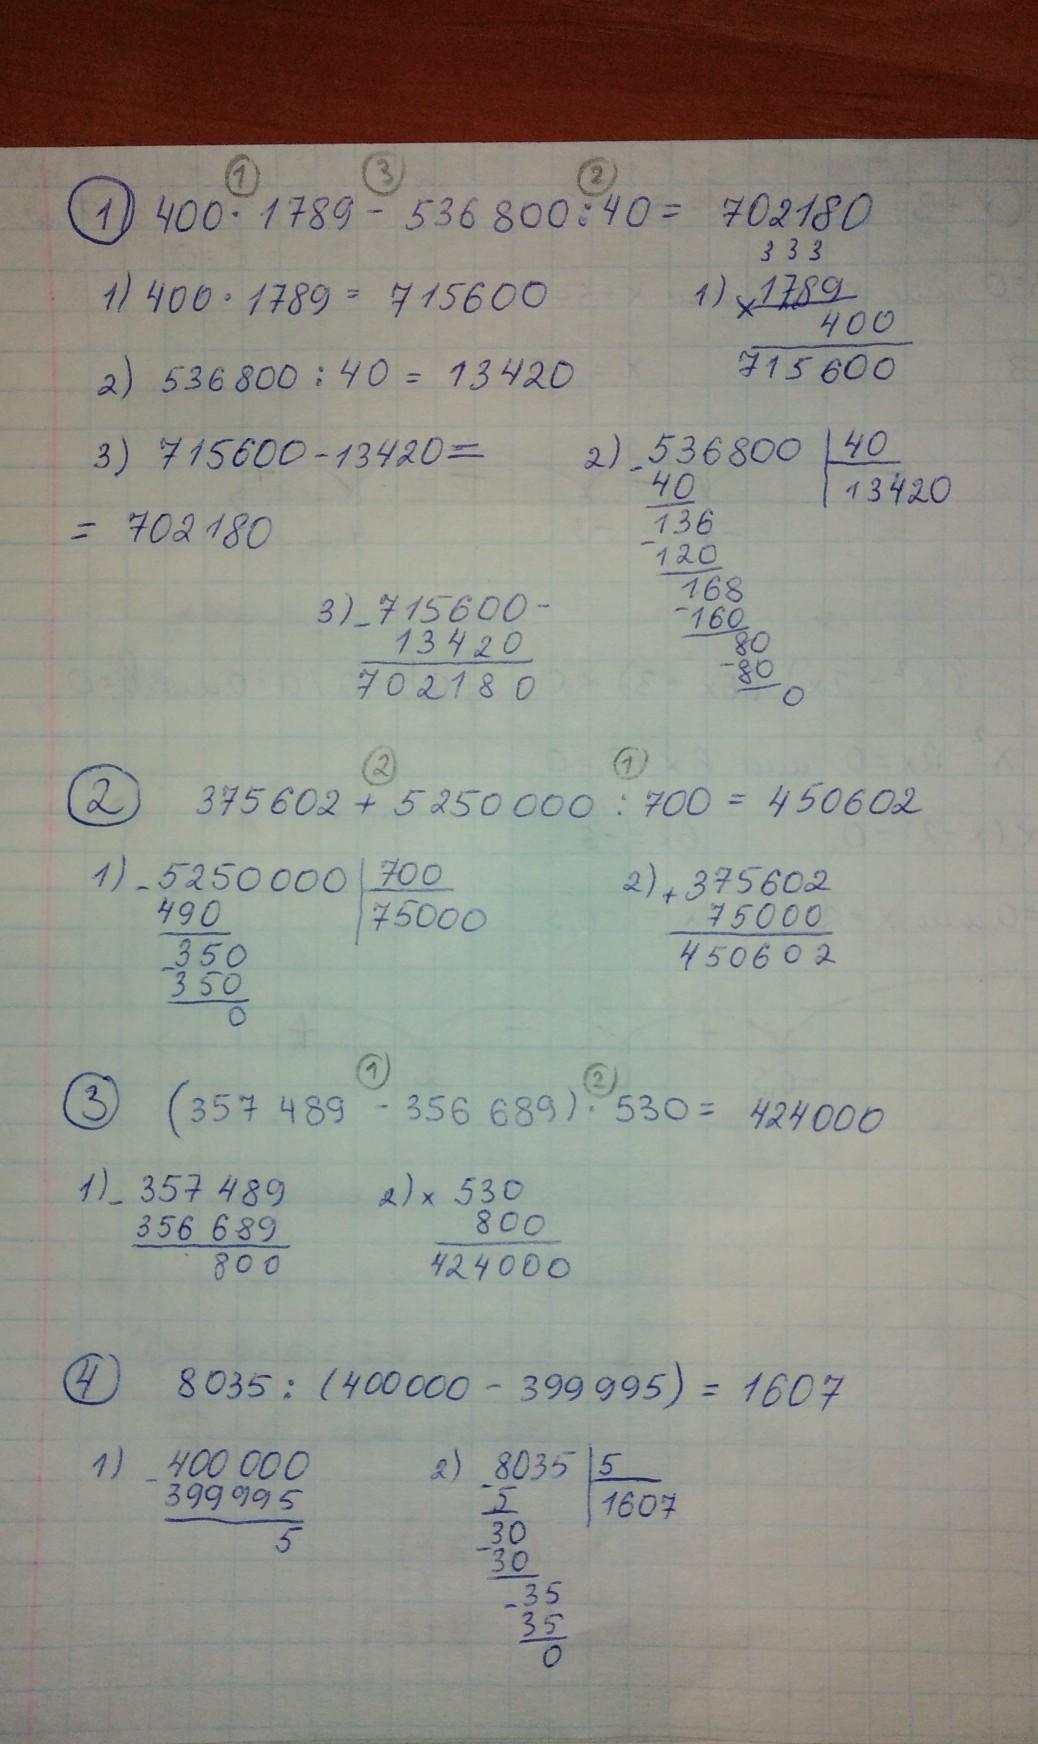 ① ③ ②
1) 400 · 1789 - 536 800 : 40 = 702180
1) 400 · 1789 = 715600
2) 536800 : 40 = 13420
3) 715600 - 13420 =
= 702180
333
1) × 1789
400
715600
2) - 536800 | 40
40 | 13420
136
- 120
168
- 160
80
- 80
0
3) - 715600 -
13420
702180
② ①
② 375602 + 5250000 : 700 = 450602
1) - 5250000 | 700
490 | 75000
- 350
350
0
2) + 375602
75000
450602
① ②
③ (357 489 - 356 689) · 530 = 424000
1) - 357 489
356 689
800
2) × 530
800
424000
④ 8035 : (400000 - 399 995) = 1607
1) - 400 000
399995
5
2) - 8035 | 5
5 | 1607
- 30
30
- 35
35
0